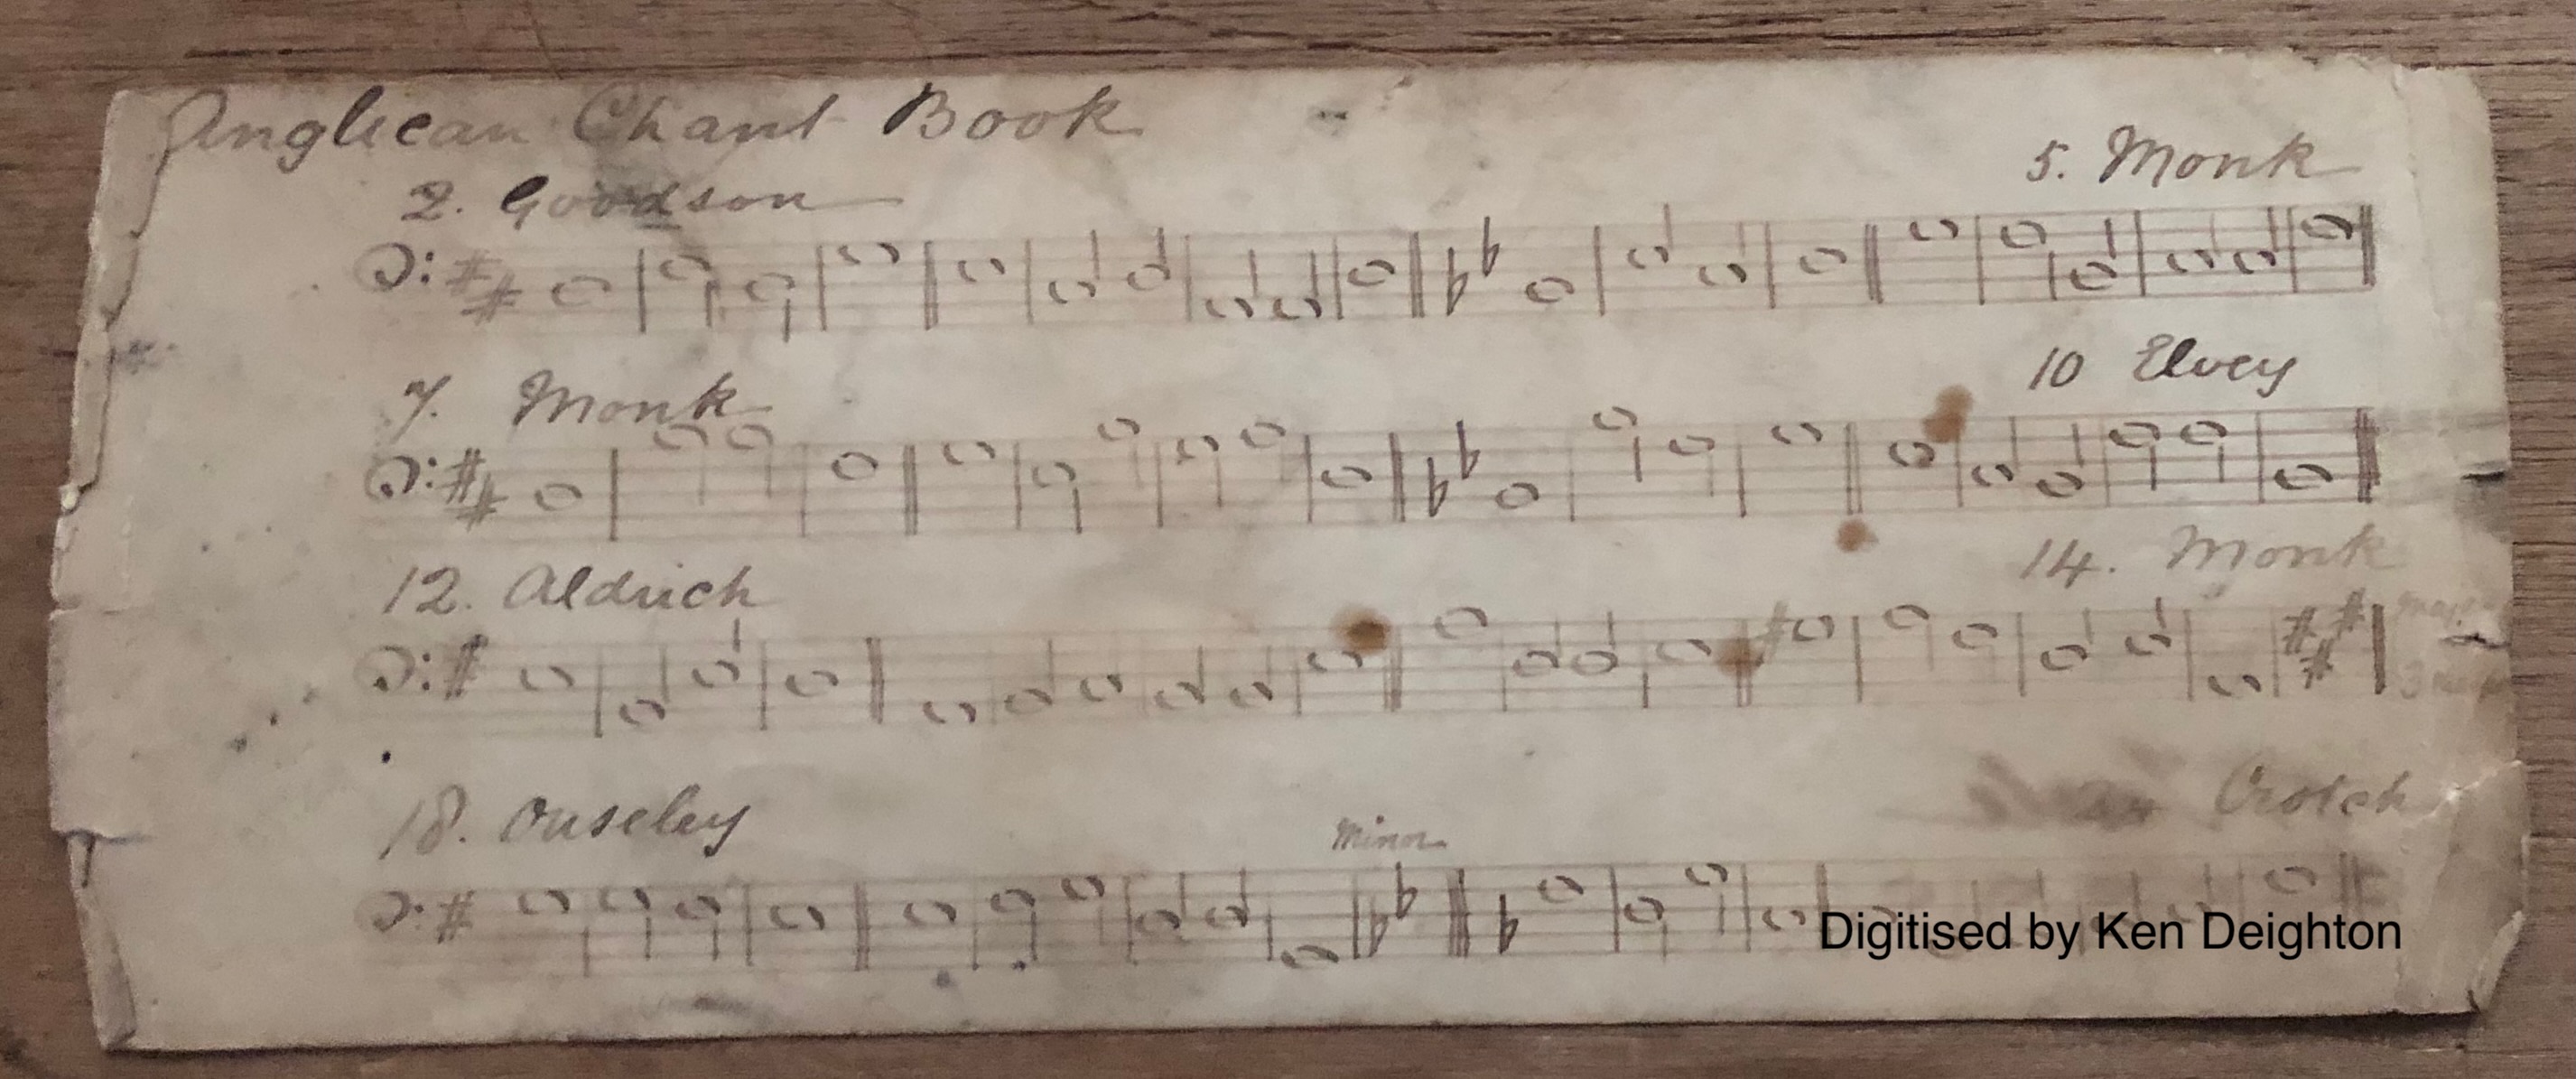 Anglican Chant Book
2. Goodson
5. Monk
7. Monk
10 Elvey
12. Aldrich
14. Monk
18. Ouseley
Minor
Crotch
Digitised by Ken Deighton